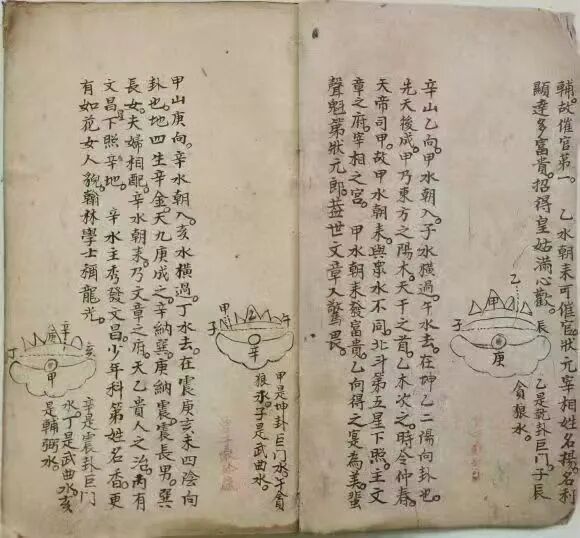 輔故催官第一。 乙水朝来可催官狀元宰相姓名揚名利
顯達多富貴。招得皇姑滿心歡。
乙
甲
辰
子
庚
乙是兌卦巨门。子辰
貪狼水。
辛山乙向。甲水朝入。子水橫過。午水去。在坤乙二陽向卦也。
先天後成甲乃東方之陽木。天干之首。乙木次之。時令仲春。
天帝司甲。故甲水朝来。與衆水不同。北斗第五星下照。主文
章之府。宰相之宮。 甲水朝来發富貴。乙向得之寔為美。蜚
聲魁第狀元郎。蓋世文章人驚畏。
甲
乙
午
子
辛
甲是坤卦巨门水。午貪
狼水。子是武曲水。
甲山庚向。辛水朝入。亥水橫過。丁水去。在震庚亥未四陰向
卦也。地四生辛金。天九庚成之。辛納巽。庚納震。震長男。巽
長女。夫婦相配。辛水朝来。乃文章之府。天乙貴人之治。丙有
文昌下照辛地。 辛水主秀發文昌。少年科第姓名香。更
有如花女人貌。翰林學士稱龍光。
辛
庚
亥
丁
甲
辛是震卦巨门
水。丁是武曲水。亥
是輔弼水。